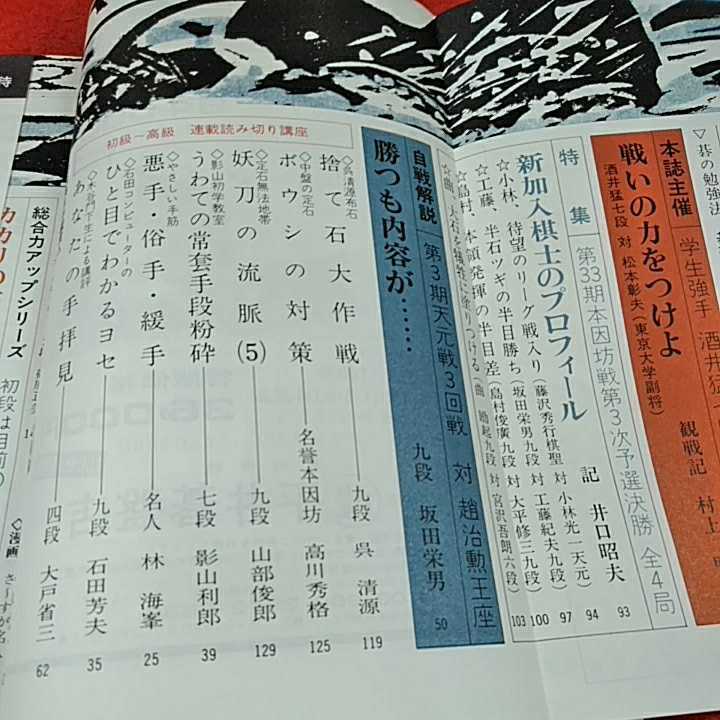 ▽碁の勉強法
本誌主催
学生強手
戦いの力をつけよ
酒井猛七段 対 松本彰夫(東京大学副将)
観戦記 村上
特集
第33期本因坊戦第3次予選決勝 全4局
新加入棋士のプロフィール
記 井口昭夫 93
☆小林、待望のリーグ戦入り(藤沢秀行棋聖 対 小林光一天元) 94
☆工藤、半石ツギの半目勝ち(坂田栄男九段 対 工藤紀夫九段) 97
☆島村、本領発揮の半目差(島村俊廣九段 対 大平修三九段) 100
対 宮沢吾朗六段) 103
自戦解説
第3期天元戦3回戦 対 趙治勲王座
勝つも内容が……
九段 坂田栄男 50
初級−高級 連載読み切り講座
◇呉清源布石
捨て石大作戦
九段 呉清源 119
◇中盤の定石
ボウシの対策
名誉本因坊 高川秀格 125
◇定石無法地帯
妖刀の流脈(5)
九段 山部俊郎 129
◇影山初学教室
うわての常套手段粉砕
七段 影山利郎 39
◇やさしい手筋
悪手・俗手・緩手
名人 林海峯 25
◇石田コンピューターの
ひと目でわかるヨセ
九段 石田芳夫 35
◇木谷門下生による講評
あなたの手拝見
四段 大戸省三 62
総合力アップシリーズ
初段は目前の
◇漫画